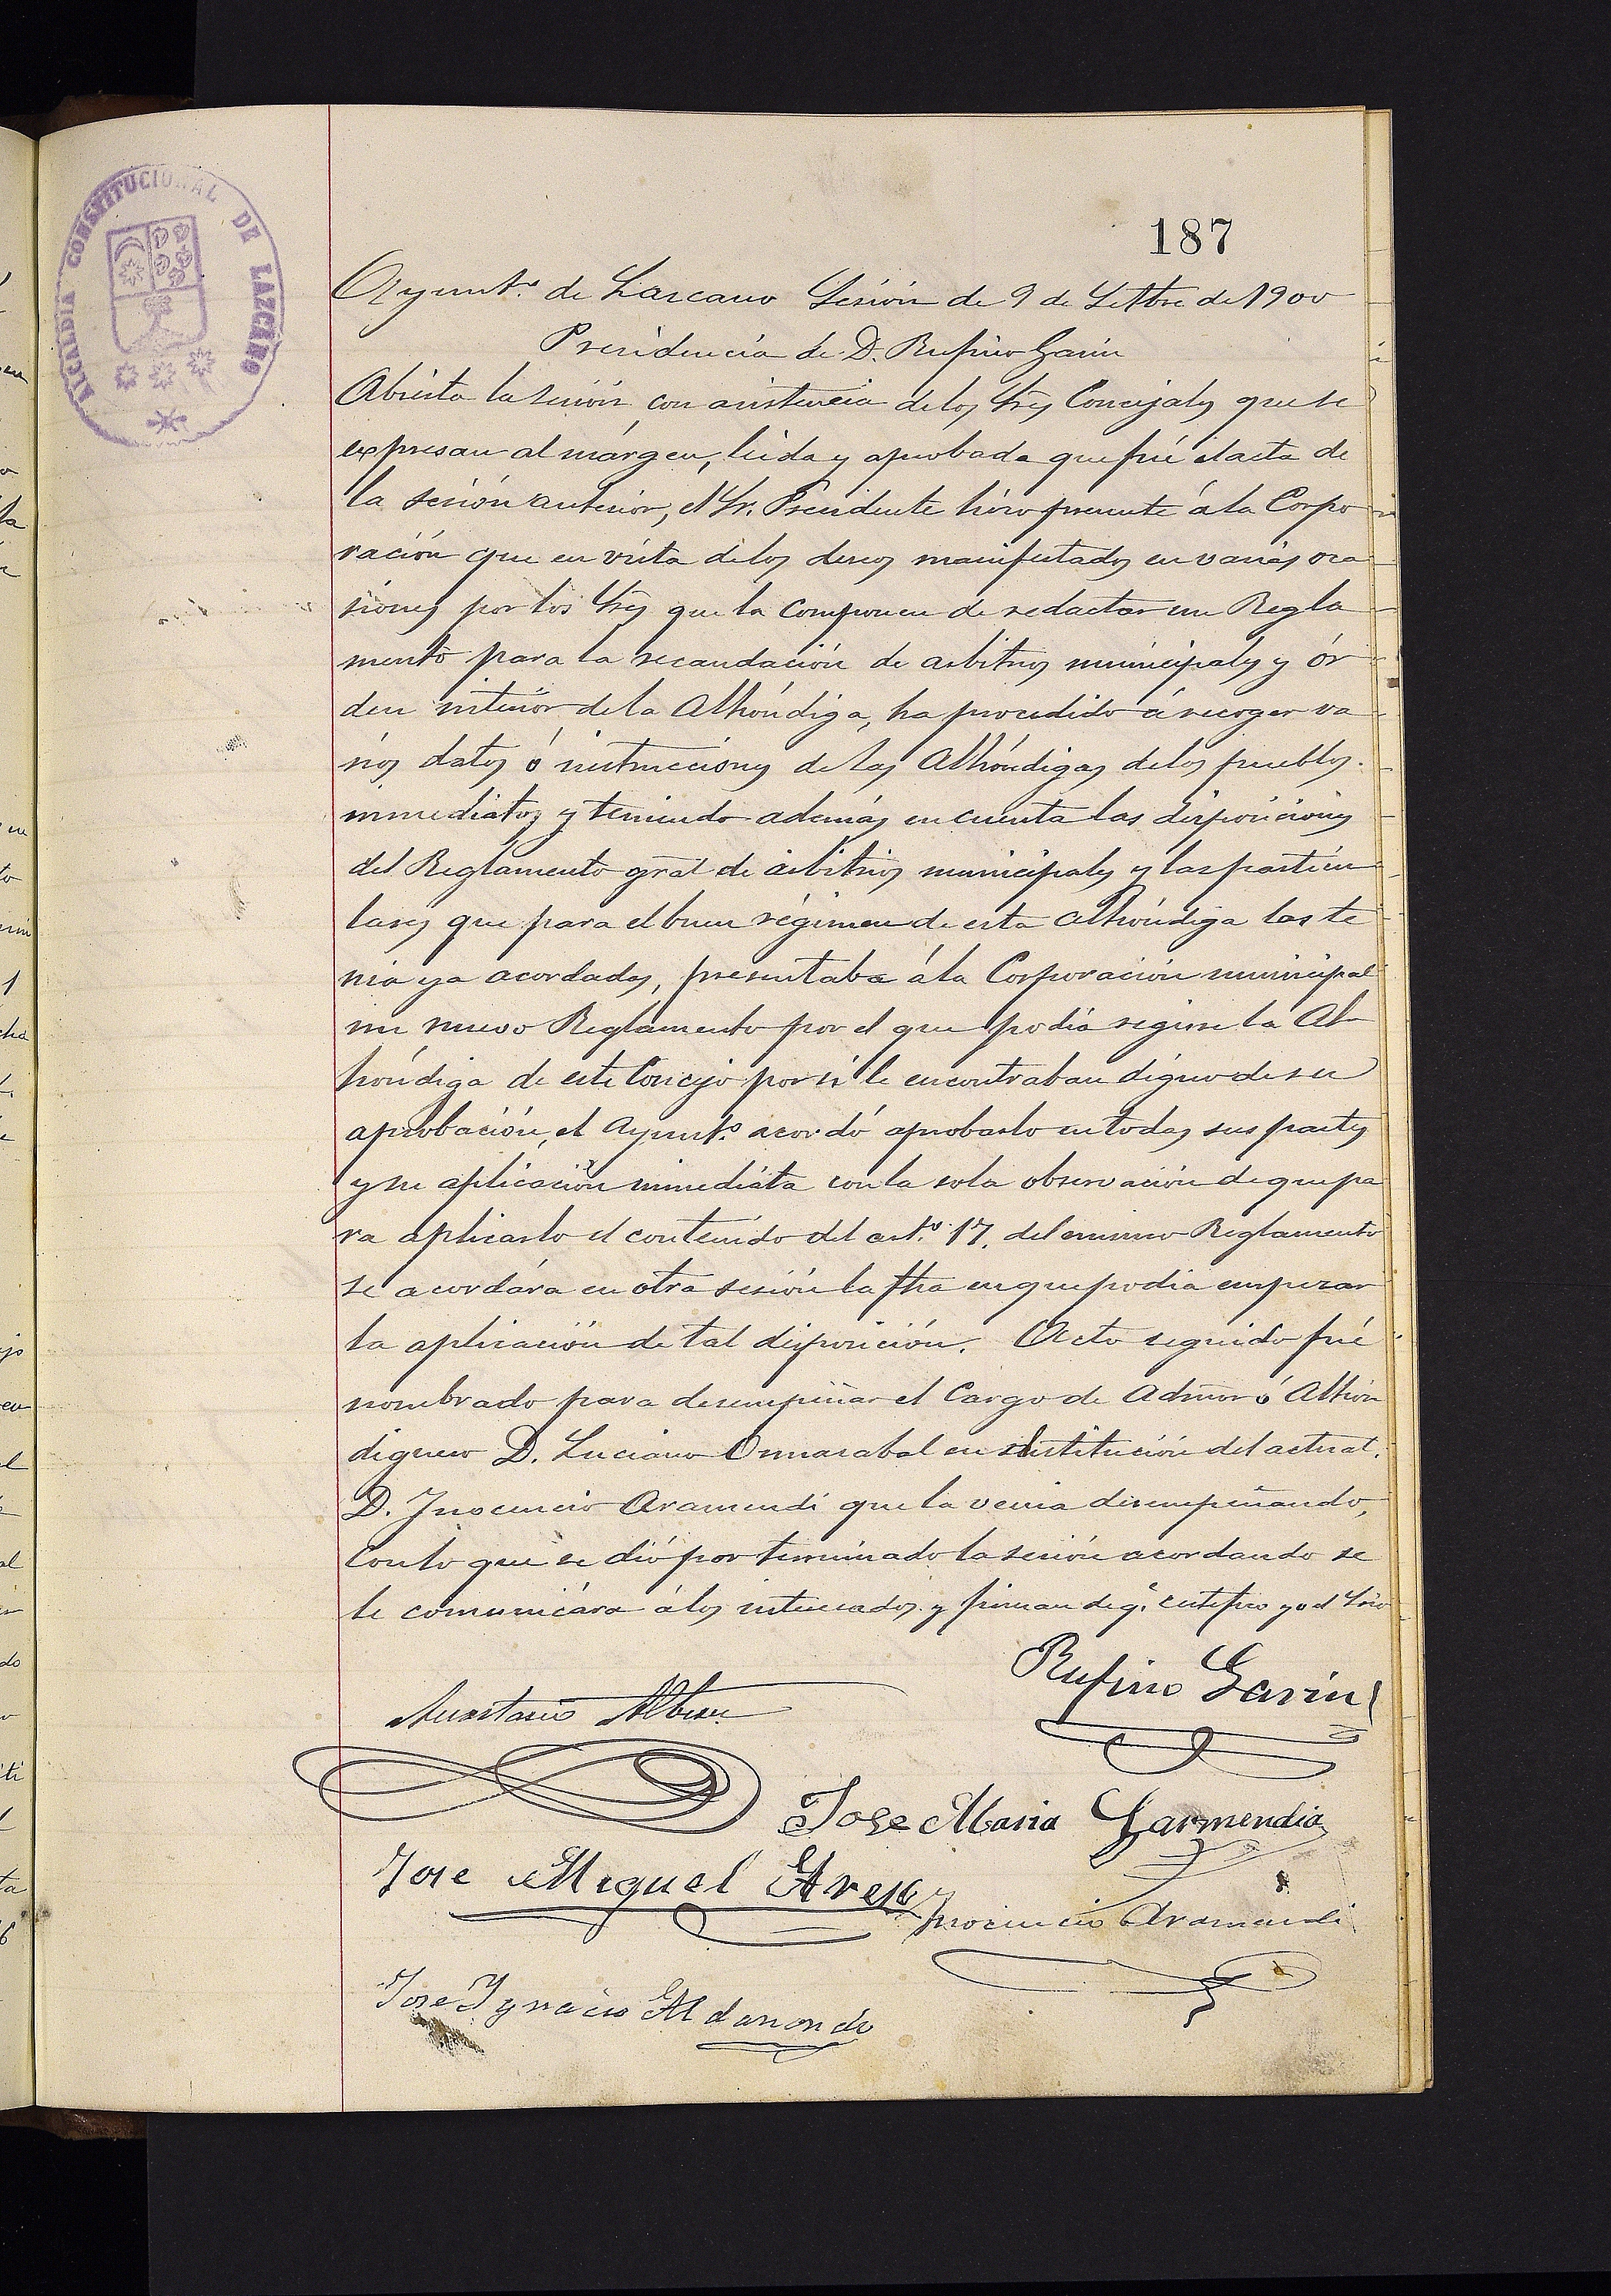 ALCALDIA CONSTITUCIONAL DE LAZCANO
187
Ayunt.º de Lazcano Sesión de 9 de Setbre de 1900
Presidencia de D. Rufino Garin
Abierta la sesión con asistencia de los Sres Concejales que se
expresan al márgen, leida y aprobada que fué el acta de
la sesión anterior, el Sr. Presidente hizo presente á la Corpo
ración que en vista de los deseos manifestados en varias oca
siones por los Sres que la componen de redactar un Regla
mento para la recaudación de arbitrios municipales y ór
den interior de la Alhóndiga, ha procedido á recoger va
rios datos ó instrucciones de las Alhóndigas de los pueblos
inmediatos y teniendo además en cuenta las disposiciones
del Reglamento gral de arbitrios municipales y las particu
lares que para el buen régimen de esta Alhóndiga las te
nia ya acordadas, presentaba á la Corporación municipal
un nuevo Reglamento por el que podia regirse la Al
hóndiga de este Concejo por si le encontraban digno de su
aprobación, el Ayunt.º acordó aprobarlo en todas sus partes
y su aplicación inmediata con la sola observación de que pa
ra aplicarlo el contenido del art.º 17. del mismo Reglamento
se acordára en otra sesión la fha en que podia empezar
la aplicación de tal disposición. Acto seguido fué
nombrado para desempeñar el Cargo de Admor ó Alhón
diguero D. Luciano Ormazabal en sustitución del actual.
D. Inocencio Aramendi que la venia desempeñando,
con lo que se dió por terminado la sesión acordando se
le comunicára á los interesados y firman de q.e certifico yo el Srio
Rufino Garin
Anastasio Albisu
Jose Maria Garmendia
Jose Miguel
Inocencio Aramendi
Jose Ygnacio Aldanondo